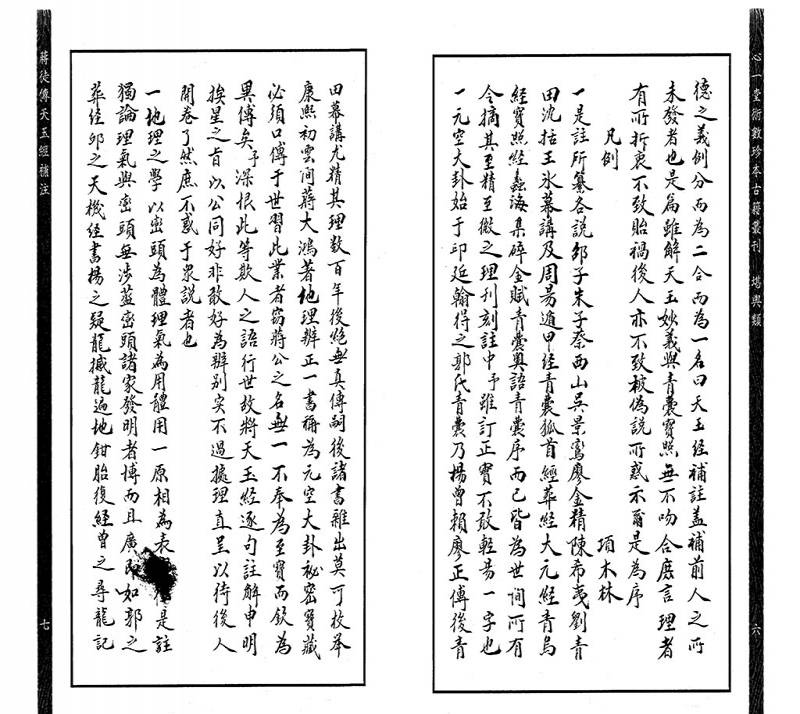 心一堂術數珍本古籍叢刊 堪輿類
六
德之義例分而為二合而為一名曰天玉經補註蓋補前人之所
未發者也是篇雖解天玉妙義與青囊寶照無不吻合庶言理者
有所折衷不致貽禍後人亦不致被偽說所惑示爾是為序
項木林
凡例
一是註所纂各說邵子朱子蔡西山吳景鸞廖金精陳希夷劉青
田沈括王氷幕講及周易遁甲經青囊狐首經葬經大元經青烏
經寶照經蠡海集碎金賦青囊奧語青囊序而已皆為世間所有
今摘其至精至微之理刊刻註中予雖訂正實不敢輕易一字也
一元空大卦始于邱延翰得之郭氏青囊乃楊曾賴廖正傳後青
田幕講尤精其理數百年後絕無真傳嗣後諸書雜出莫可枚举
康熙初雲間蔣大鴻著地理辨正一書稱為元空大卦祕密寶藏
必須口傳于世習此業者竊蔣公之名無一不奉為至寶而欽為
異傳矣予深恨此等欺人之語行世故將天玉經逐句註解申明
挨星之旨以公同好非敢好為辨别实不過據理直呈以待後人
開卷了然庶不惑于眾說者也
一地理之學以巒頭為體理氣為用體用一原相為表 是註
獨論理氣與巒頭無涉蓋巒頭諸家發明者博而且廣即如郭之
葬經卯之天機經書楊之疑龍撼龍遍地鉗胎復經曾之尋龍記
蔣徒傳天玉經補注
七